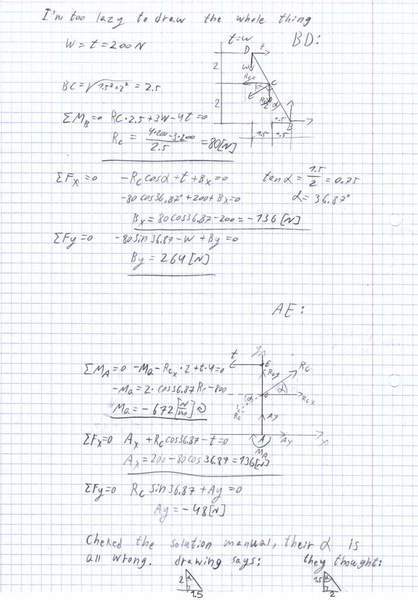 I'm too lazy to draw the whole thing
W = t = 200 N
t=W
BD:
D
t
W
2
2
C
B
1.5
1.5
BC = √1.5²+2² = 2.5
ΣM_B=0 Rc·2.5+3W-4t=0
Rc = (4·200-3·200)/2.5 = 80[N]
ΣFx=0 -Rc cosα-t+Bx=0
tanα = 1.5/2 = 0.75
-80cos36.87°+200+Bx=0
α = 36.87°
Bx = 80cos36.87-200=-136[N]
ΣFy=0 -80sin36.87-W+By=0
By = 264[N]
AE:
t
E
Rc
α
Rcx
Ay
A
Ma
x
ΣM_A=0 -Ma-Rcx·2+t·4=0
-Ma=2·cos36.87Rc-800
Ma=-672[N/m]
ΣFx=0 Ax+Rc cos36.87-t=0
Ax=200-80cos36.87=136[N]
ΣFy=0 Rc sin36.87+Ay=0
Ay=-48[N]
Cheked the solution manual, their α is
all wrong. drawing says: they thought:
2
1.5
1.5
2